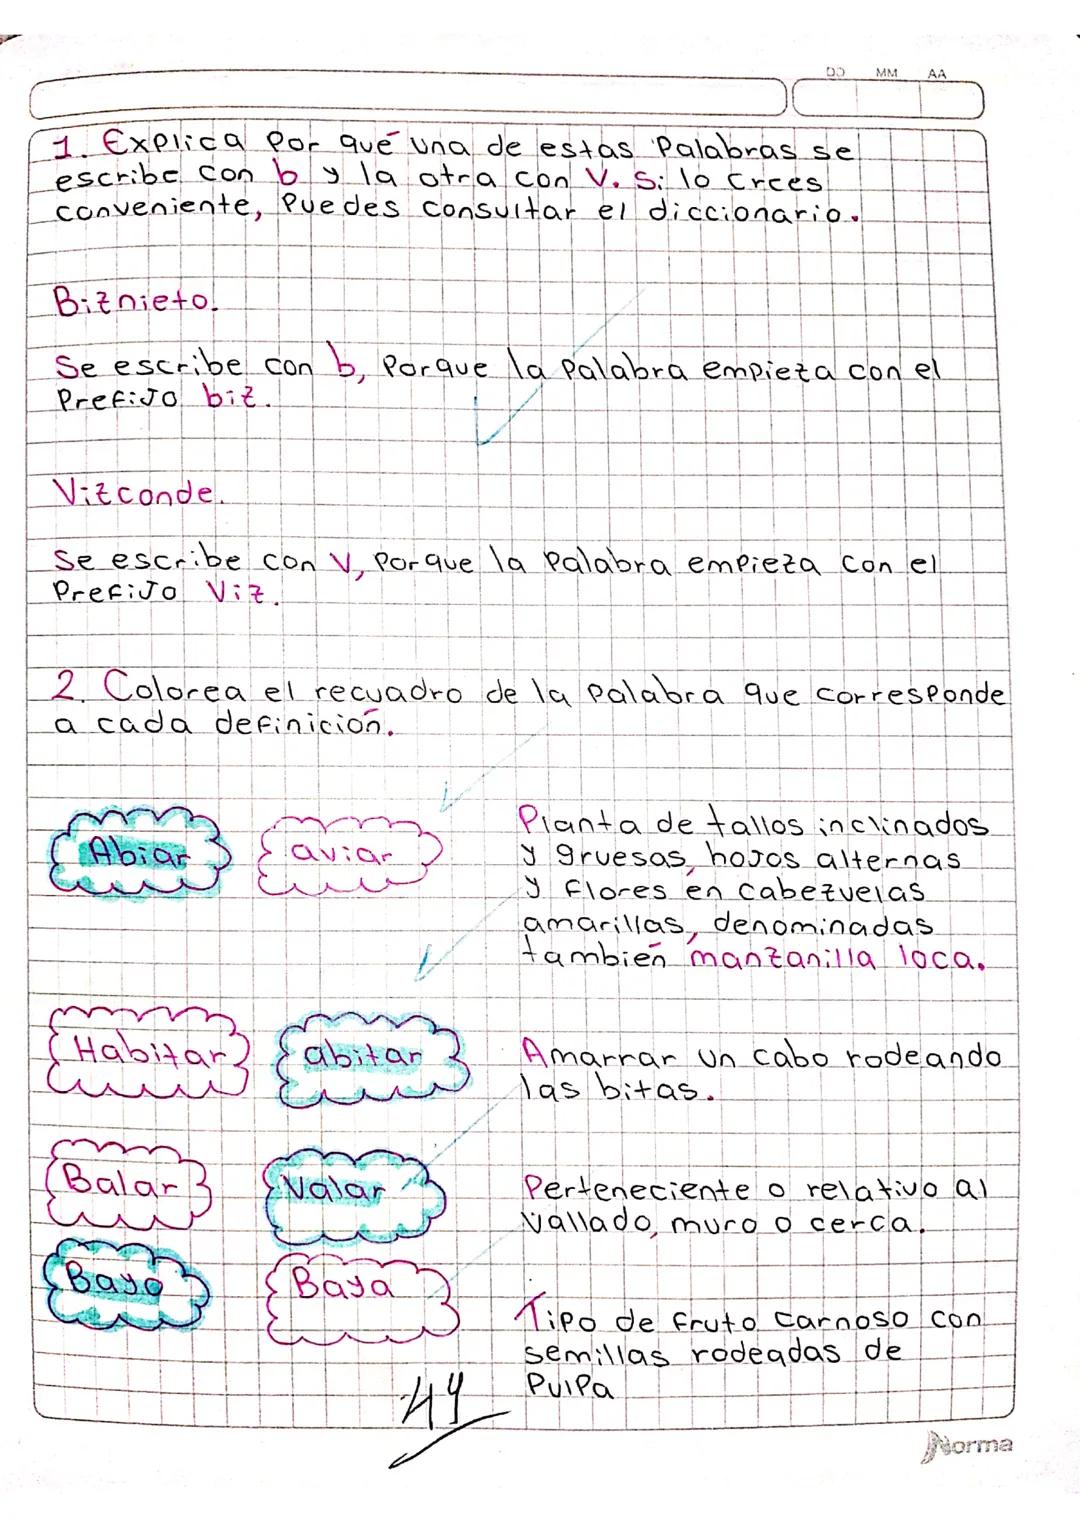 DD MM AA
1. Explica por qué una de estas palabras se
escribe con b y la otra con v. Si lo crees
conveniente, puedes consultar el diccionario.
Biznieto.
Se escribe con b, porque la palabra empieza con el
prefijo biz.
Vizconde.
Se escribe con v, porque la palabra empieza con el
prefijo viz.
2. Colorea el recuadro de la palabra que corresponde
a cada definición.
Abiar aviar
Planta de tallos inclinados
y gruesas, hojos alternas
y flores en cabezuelas
amarillas, denominadas
también manzanilla loca.
Habitar abitar
Amarrar un cabo rodeando
las bitas.
Balar Valar
Perteneciente o relativo al
vallado, muro o cerca.
Bayo Baya
Tipo de fruto carnoso con
semillas rodeadas de
pulpa
44
Norma